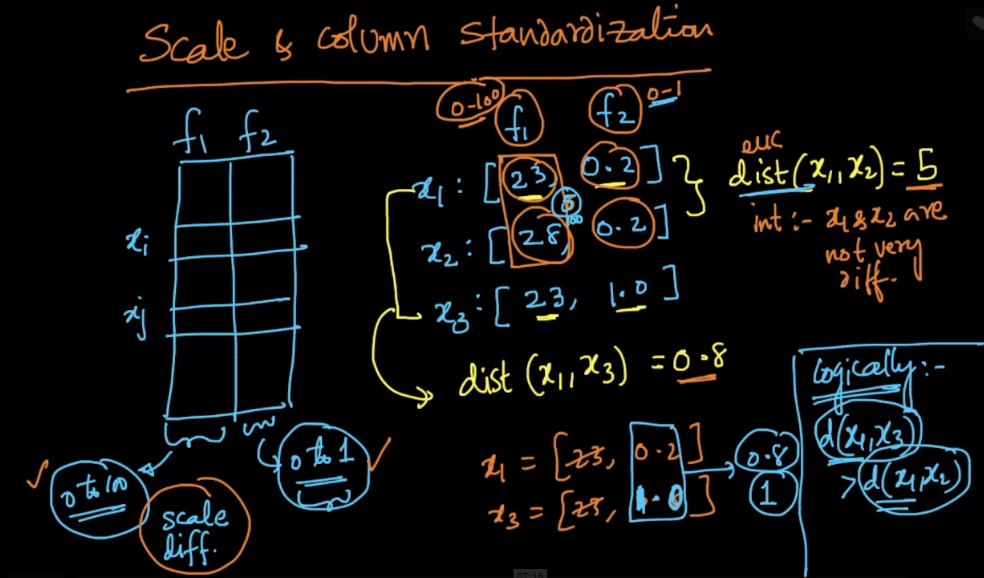 Scale & column standardization
f1 f2
xi
xj
0 to 100
0 to 1
scale
diff.
0-100 f1 f2 0-1
x1 : [23, 0.2]
5
100
x2 : [28, 0.2]
x3 : [23, 1.0]
euc
dist(x1, x2) = 5
int :- x1 & x2 are
not very
diff.
dist (x1, x3) = 0.8
x1 = [23, 0.2]
x3 = [23, 1.0]
0.8
1
Logically :-
d(x1, x3)
> d(x1, x2)